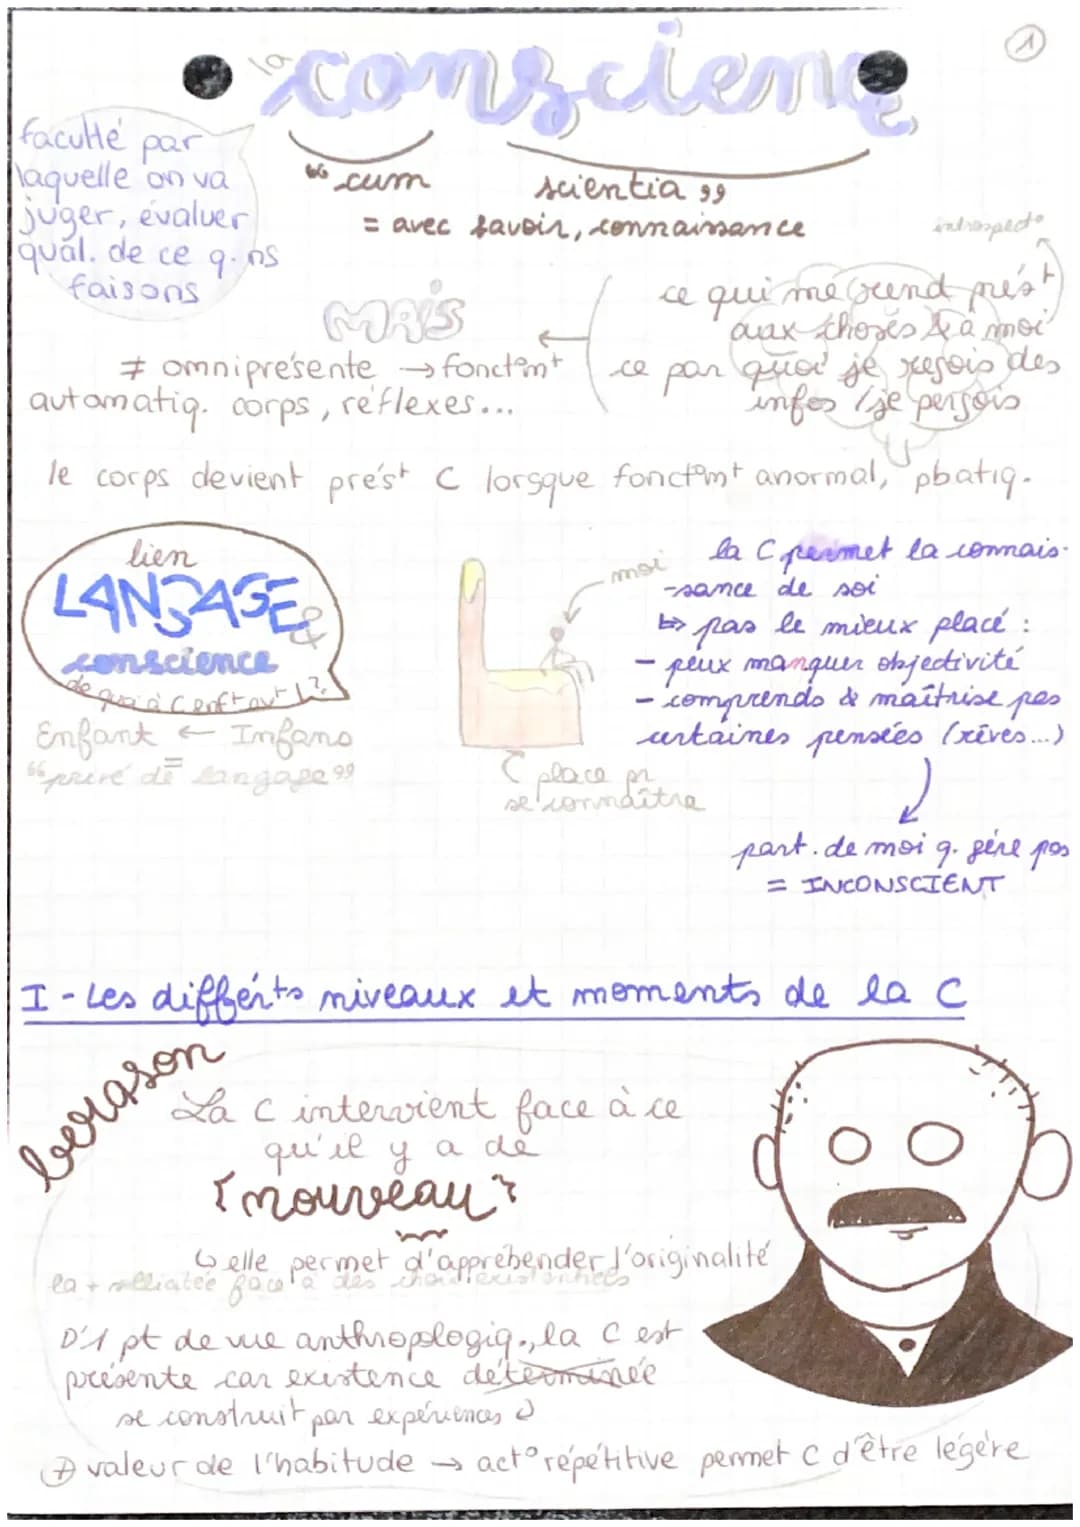 1
la conscience
faculté par
laquelle on va
juger, évaluer
qual. de ce q. ns
faisons
“ cum scientia ”
= avec savoir, connaissance
introspect°
MAIS
ce qui me rend prést
aux choses & à moi
ce par quoi je reçois des
infos / je perçois
≠ omniprésente → fonct°mt
automatiq. corps, réflexes...
le corps devient prést C lorsque fonct°mt anormal, pbatiq.
lien
LANGAGE &
conscience
de quoi à C enft av t L ?
Enfant ← Infans
= “privé de langage”
moi
C place pr
se connaître
la C permet la connais-
-sance de soi
↳ pas le mieux placé :
- peux manquer objectivité
- comprends & maîtrise pas
certaines pensées (rêves...)
part. de moi q. gère pas
= INCONSCIENT
I - Les différts niveaux et moments de la C
bergson
La C intervient face à ce
qu'il y a de
nouveau
↳ elle permet d'appréhender l'originalité
la + face à des choix existentiels
D'1 pt de vue anthropologiq., la C est
présente car existence déterminée
se construit par expériences
+ valeur de l'habitude → act° répétitive permet C d'être légère